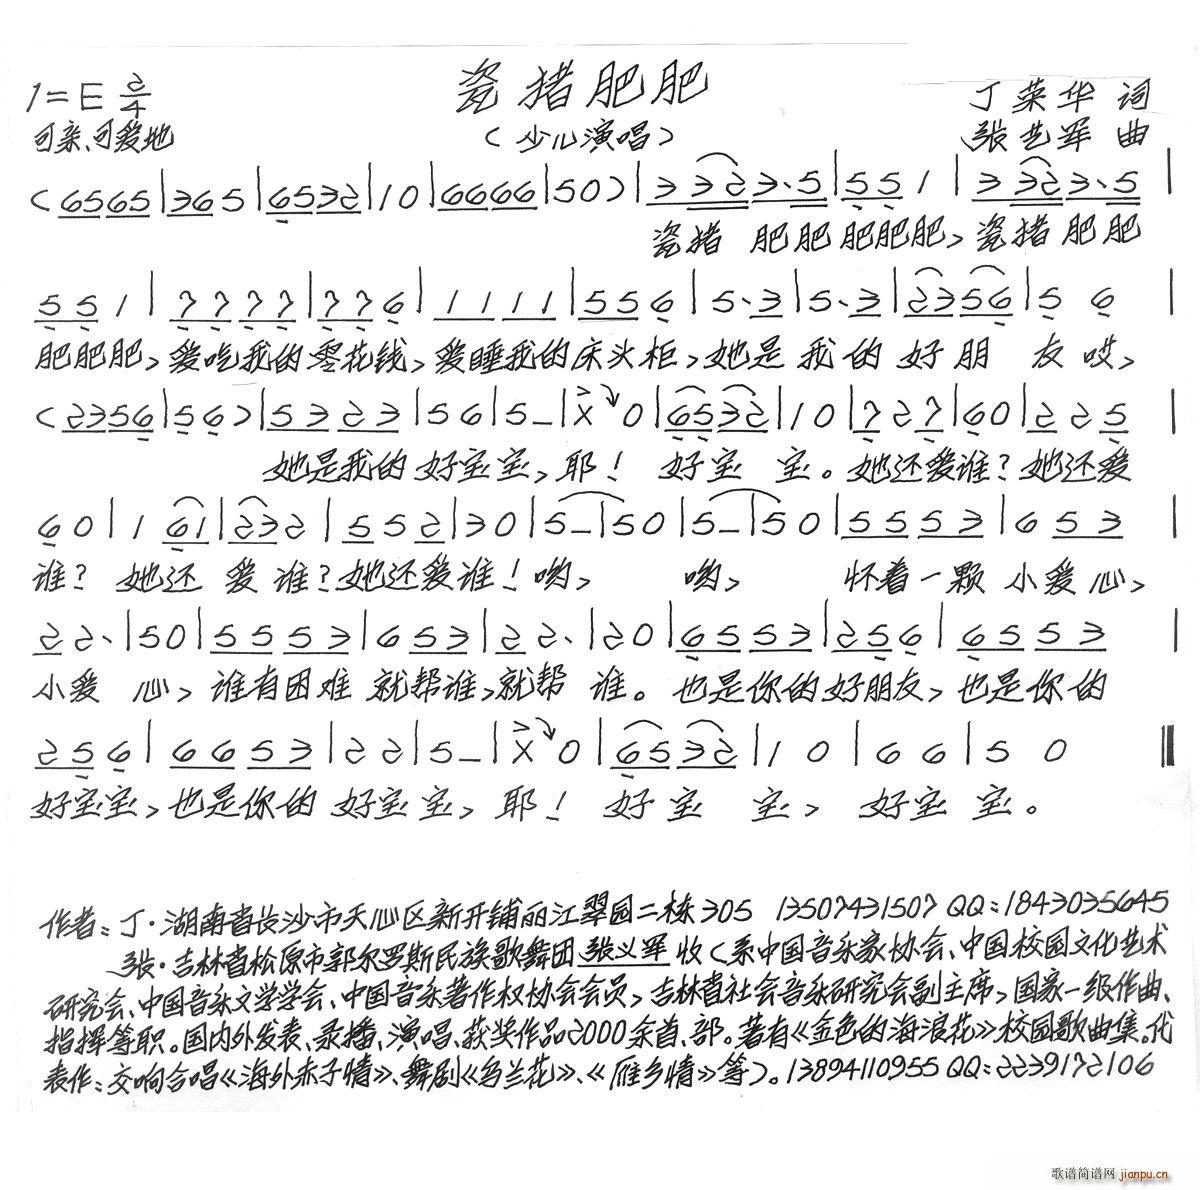 瓷猪肥肥
1=E 2/4
丁荣华 词
可亲、可爱地
（少儿演唱）
张艺军 曲
（6565|365|6532|10|6666|50）|3 323·5|551|3 323·5|
瓷猪 肥肥肥肥肥，瓷猪肥肥
551|7777|776|1111|556|5·3|5·3|2356|5 6|
肥肥肥，爱吃我的零花钱，爱睡我的床头柜，她是 我的 好朋 友哎，
（2356|56）|5323|56|5–|X 0|6532|10|727|60|225|
她是我的好宝宝，耶！ 好宝 宝。她还爱谁？她还爱
60|1 61|232|552|30|5–|50|5–|50|5553|653|
谁？ 她还 爱谁？她还爱谁！哟， 哟， 怀着一颗 小爱心，
22·|50|5553|653|22·|20|6553|256|6553|
小爱 心，谁有困难 就帮谁，就帮 谁。也是你的好朋友，也是你的
256|6653|22|5–|X 0|6532|1 0|66|5 0‖
好宝宝，也是你的 好宝宝，耶！ 好宝 宝， 好宝 宝。
作者：丁·湖南省长沙市天心区新开铺丽江翠园二栋305 13507431507 QQ：1843035645
张·吉林省松原市郭尔罗斯民族歌舞团张义军收（系中国音乐家协会、中国校园文化艺术
研究会、中国音乐文学学会、中国音乐著作权协会会员，吉林省社会音乐研究会副主席，国家一级作曲、
指挥等职。国内外发表、录播、演唱、获奖作品2000余首、部。著有《金色的海浪花》校园歌曲集。代
表作：交响合唱《海外赤子情》、舞剧《乌兰花》、《雁乡情》等）。13894110955 QQ：2239172106
歌谱简谱网 jianpu.cn